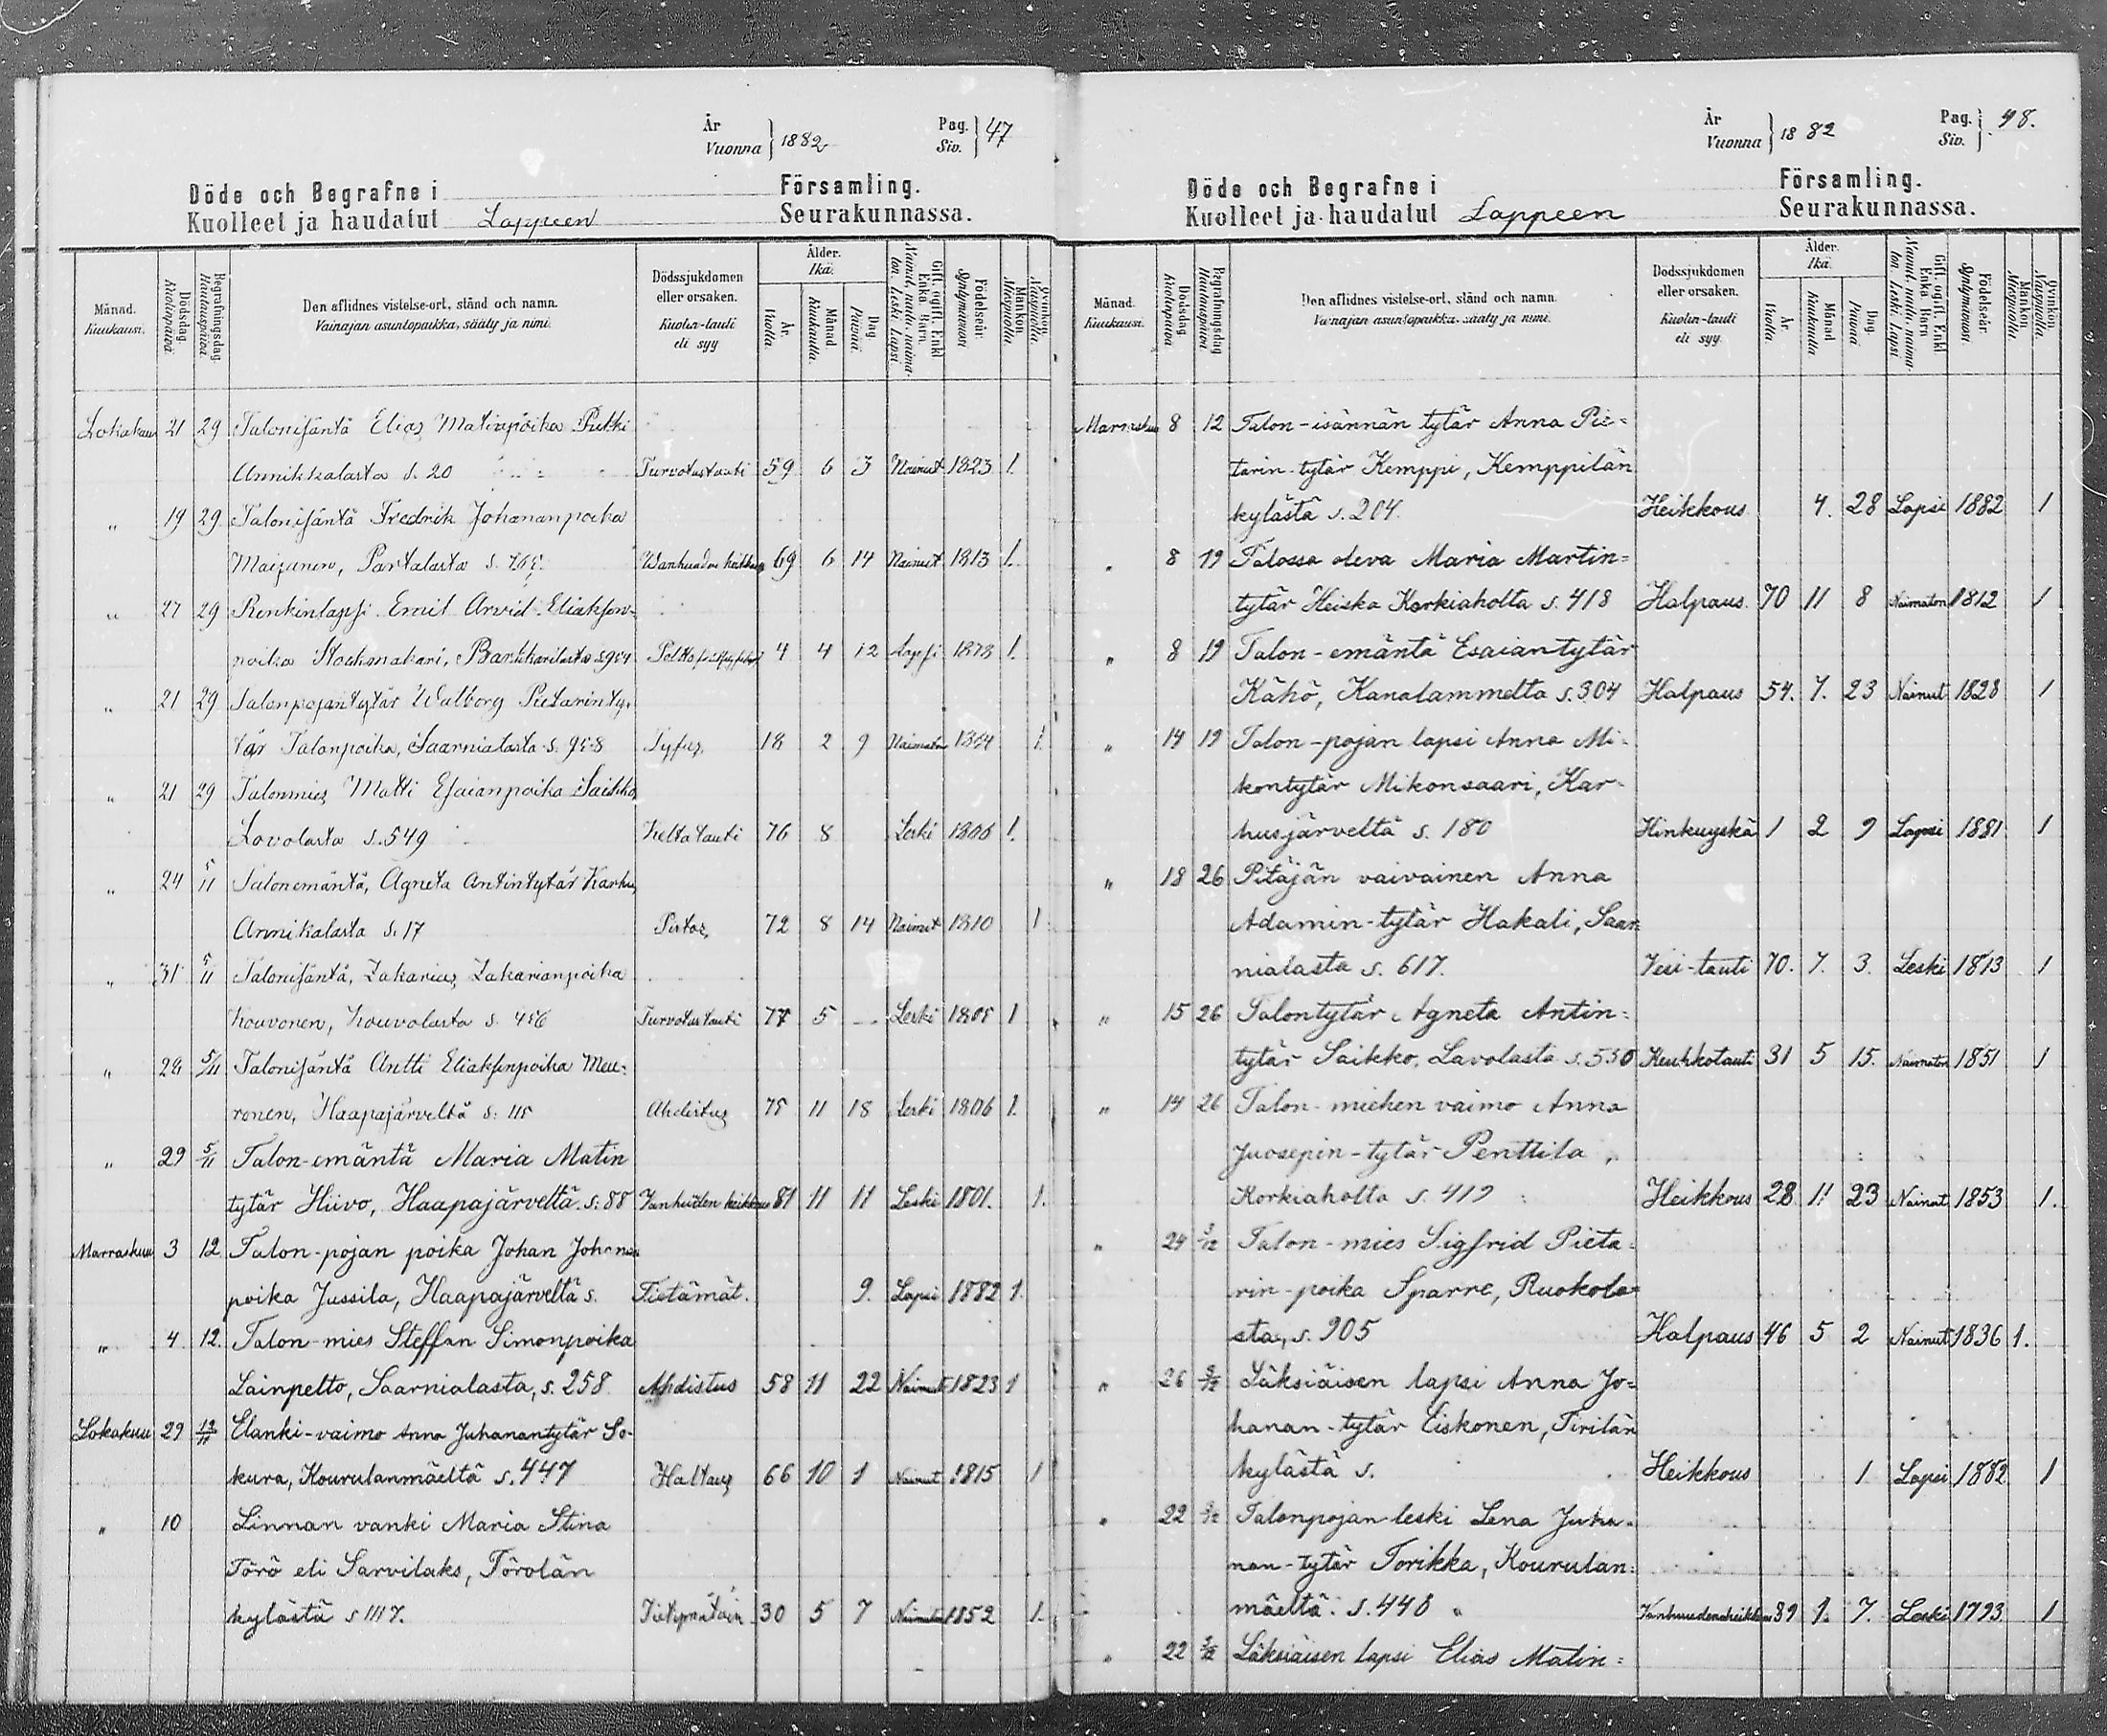 År
Vuonna } 1882
Pag.
Siv. } 47
Döde och Begrafne i Församling.
Kuolleet ja haudatut Lappeen Seurakunnassa.
Månad. Kuukausi.
Dödsdag. Kuolinpäivä.
Begrafningsdag. Hautauspäivä.
Den aflidnes vistelse-ort, stånd och namn.
Vainajan asuntopaikka, sääty ja nimi.
Dödssjukdomen eller orsaken.
Kuolin-tauti eli syy
Ålder.
Ikä.
År. Vuotta.
Månad. Kuukautta.
Dag Päivää.
Gift, ogift, Enkl. Enka, Barn.
Nainut, naimaton, Leski, Lapsi.
Födelseår. Syntymävuosi
Mankön. Miespuolta.
Qvinkön. Naispuolta.
Lokakuu 21 29 Talonisäntä Elias Matinpoika Putki
Annikkalasta s. 20 Turvotustauti 59 6 3 Nainut 1823 1.
" 19 29 Talonisäntä Fredrik Johananpoika
Maijanen, Partalasta s. Wanhuuden heikkous 69 6 14 Nainut 1813 1.
" 27 29 Renkinlapsi Emil Arvid Eliaksen-
poika 4 4 12 Lapsi 1878 1.
" 21 29 Talonpojantytär Walborg Pietarinty-
tär Talonpoika, Saarnialasta s. Tyfus, 18 2 9 Naimaton 1864 1.
" 21 29 Talonmies Matti Esaianpoika Saikko,
Lavolasta s. 549 Keltatauti 76 8 Leski 1806 1.
" 24 5/11 Talonemäntä, Agneta Antintytär Karhu,
Annikalasta s. 17 Pistos, 72 8 14 Nainut 1810 1
" 31 5/11 Talonisäntä, Zakarias Zakarianpoika
Kouvonen, Kouvolasta s. 456 Turvotustauti 77 5 Leski 1805 1
" 5/11 Talonisäntä Antti Eliaksenpoika Meu-
ronen, Haapajärveltä s. 115 Ahdistus 75 11 18 Leski 1806 1.
" 29 5/11 Talon-emäntä Maria Matin
tytär Hiivo, Haapajärveltä s. 88 Vanhuuden heikkous 81 11 11 Leski 1801. 1.
Marraskuu 3 12 Talon-pojan poika Johan Johanan
poika Jussila, Haapajärveltä s. Tietämät. 9. Lapsi 1882 1.
" 4. 12. Talon-mies Steffan Simonpoika
Lainpelto, Saarnialasta, s. 258 Ahdistus 58 11 22 Nainut 1823 1
Lokakuu 29 12/11 Elanki-vaimo Anna Juhanantytär So-
kura, Kourulanmäeltä s. 447 Haltaus 66 10 1 Nainut 1815 1
" 10 Linnan vanki Maria Stina
Törö eli Sarvilaks, Törölän
kylästä s 1117. 30 5 7 Naimaton 1852 1.
År
Vuonna } 1882
Pag.
Siv. } 48.
Döde och Begrafne i Församling.
Kuolleet ja haudatut Lappeen Seurakunnassa.
Månad. Kuukausi.
Dödsdag. Kuolinpäivä
Begrafningsdag Hautauspäivä
Den aflidnes vistelse-ort, stånd och namn.
Vainajan asuntopaikka, sääty ja nimi.
Dödssjukdomen eller orsaken.
Kuolin-tauti eli syy
Ålder.
Ikä.
År. Vuotta.
Månad Kuukautta
Dag. Päivää
Gift, ogift, Enkl. Enka, Barn
Nainut, naimaton, Leski, Lapsi
Födelseår. Syntymävuosi.
Mankön. Miespuolta.
Qvinkön. Naispuolta.
Marraskuu 8 12 Talon-isännän tytär Anna Pie-
tarin-tytär Kemppi, Kemppilän
kylästä s. 204. Heikkous 4. 28 Lapsi 1882 1
" 8 19 Talossa oleva Maria Martin-
tytär Heiska Korkiaholta s. 418 Halpaus 70 11 8 Naimaton 1812 1
" 8 19 Talon-emäntä Esaiantytär
Kähö, Kanalammelta s. 304 Halpaus 54. 7. 23 Nainut 1828 1
" 14 19 Talon-pojan lapsi Anna Mi-
kontytär Mikonsaari, Kar-
husjärveltä s. 180 Hinkuyskä 1 2 9 Lapsi 1881 1
" 18 26 Pitäjän vaivainen Anna
Adamin-tytär Hakali, Saar
nialasta s. 617. Vesi-tauti 70. 7. 3. Leski 1813 1
" 15 26 Talontytär Agneta Antin-
tytär Saikko, Lavolasta s. 530 Keuhkotauti 31 5 15. Naimaton 1851 1
" 14 26 Talon-miehen vaimo Anna
Juosepin-tytär Penttila,
Korkiaholta s. 419 Heikkous 28 11 23 Nainut 1853 1.
" 24 3/12 Talon-mies Sigfrid Pieta-
rin-poika Sparre, Ruokola-
sta, s. 905 Halpaus 46 5 2 Nainut 1836 1.
" 26 3/12 Läksiäisen lapsi Anna Jo-
hanan-tytär Eiskonen, Tirilän
kylästä s. Heikkous 1 Lapsi 1882 1
" 22 3/12 Talonpojan leski Lena Juha-
nan-tytär Torikka, Kourulan-
mäeltä s. 448 Vanhuudenheikkous 89 1. 7. Leski 1793 1
" 22 3/12 Läksiäisen lapsi Elias Matin-